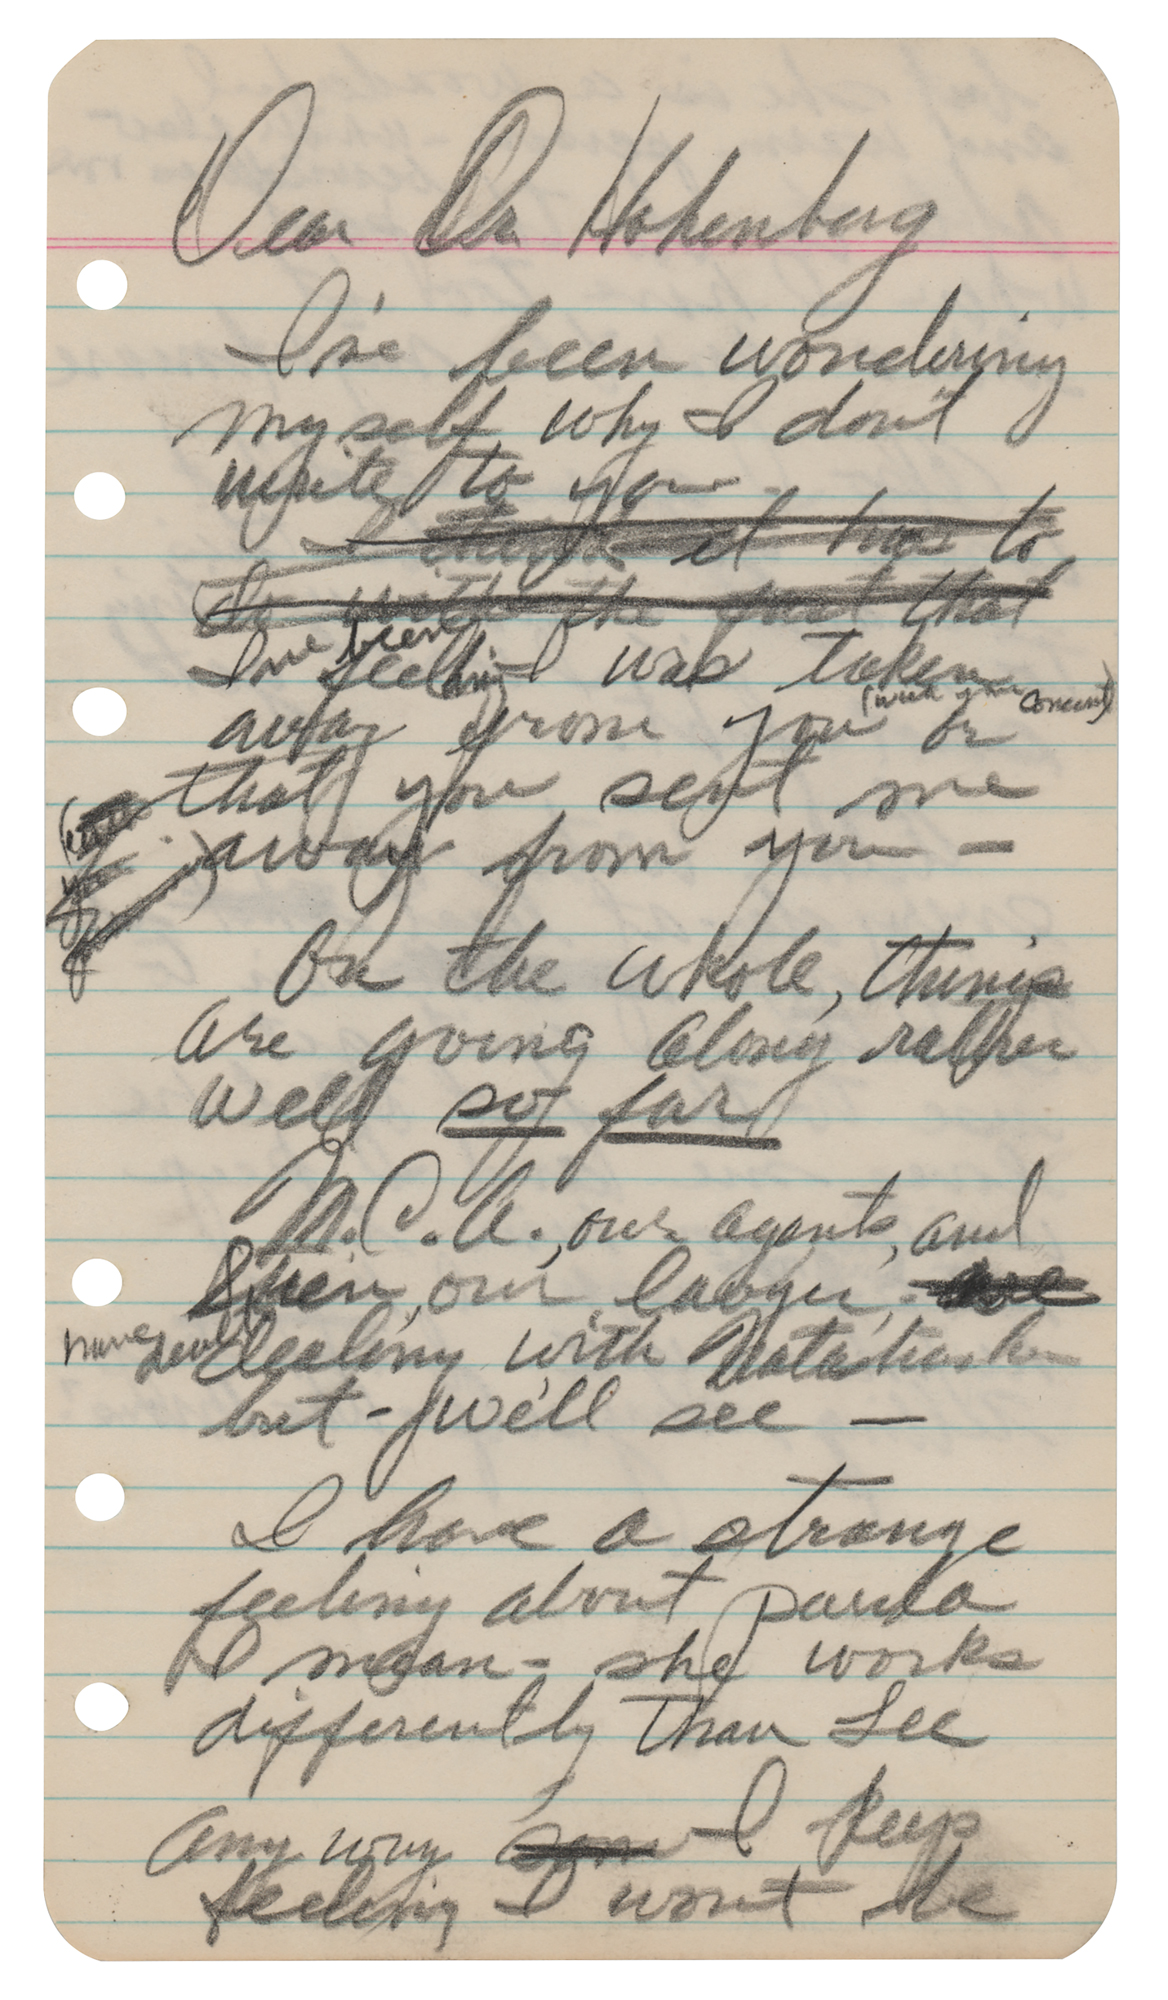 Dear Dr. Hohenberg
I've been wondering
myself why I don't
write to you -
I it has to
do with the fact that
I've been feeling I was taken
(with your consent)
away from you or
that you sent me
away from you —
On the whole, things
are going along rather
well so far
M.C.A., our agents, and
our lawyer, - are
have
dealing with Natasha
but - we'll see —
I have a strange
feeling about paula
I mean - she works
differently than Lee
any way I keep
feeling I won't be